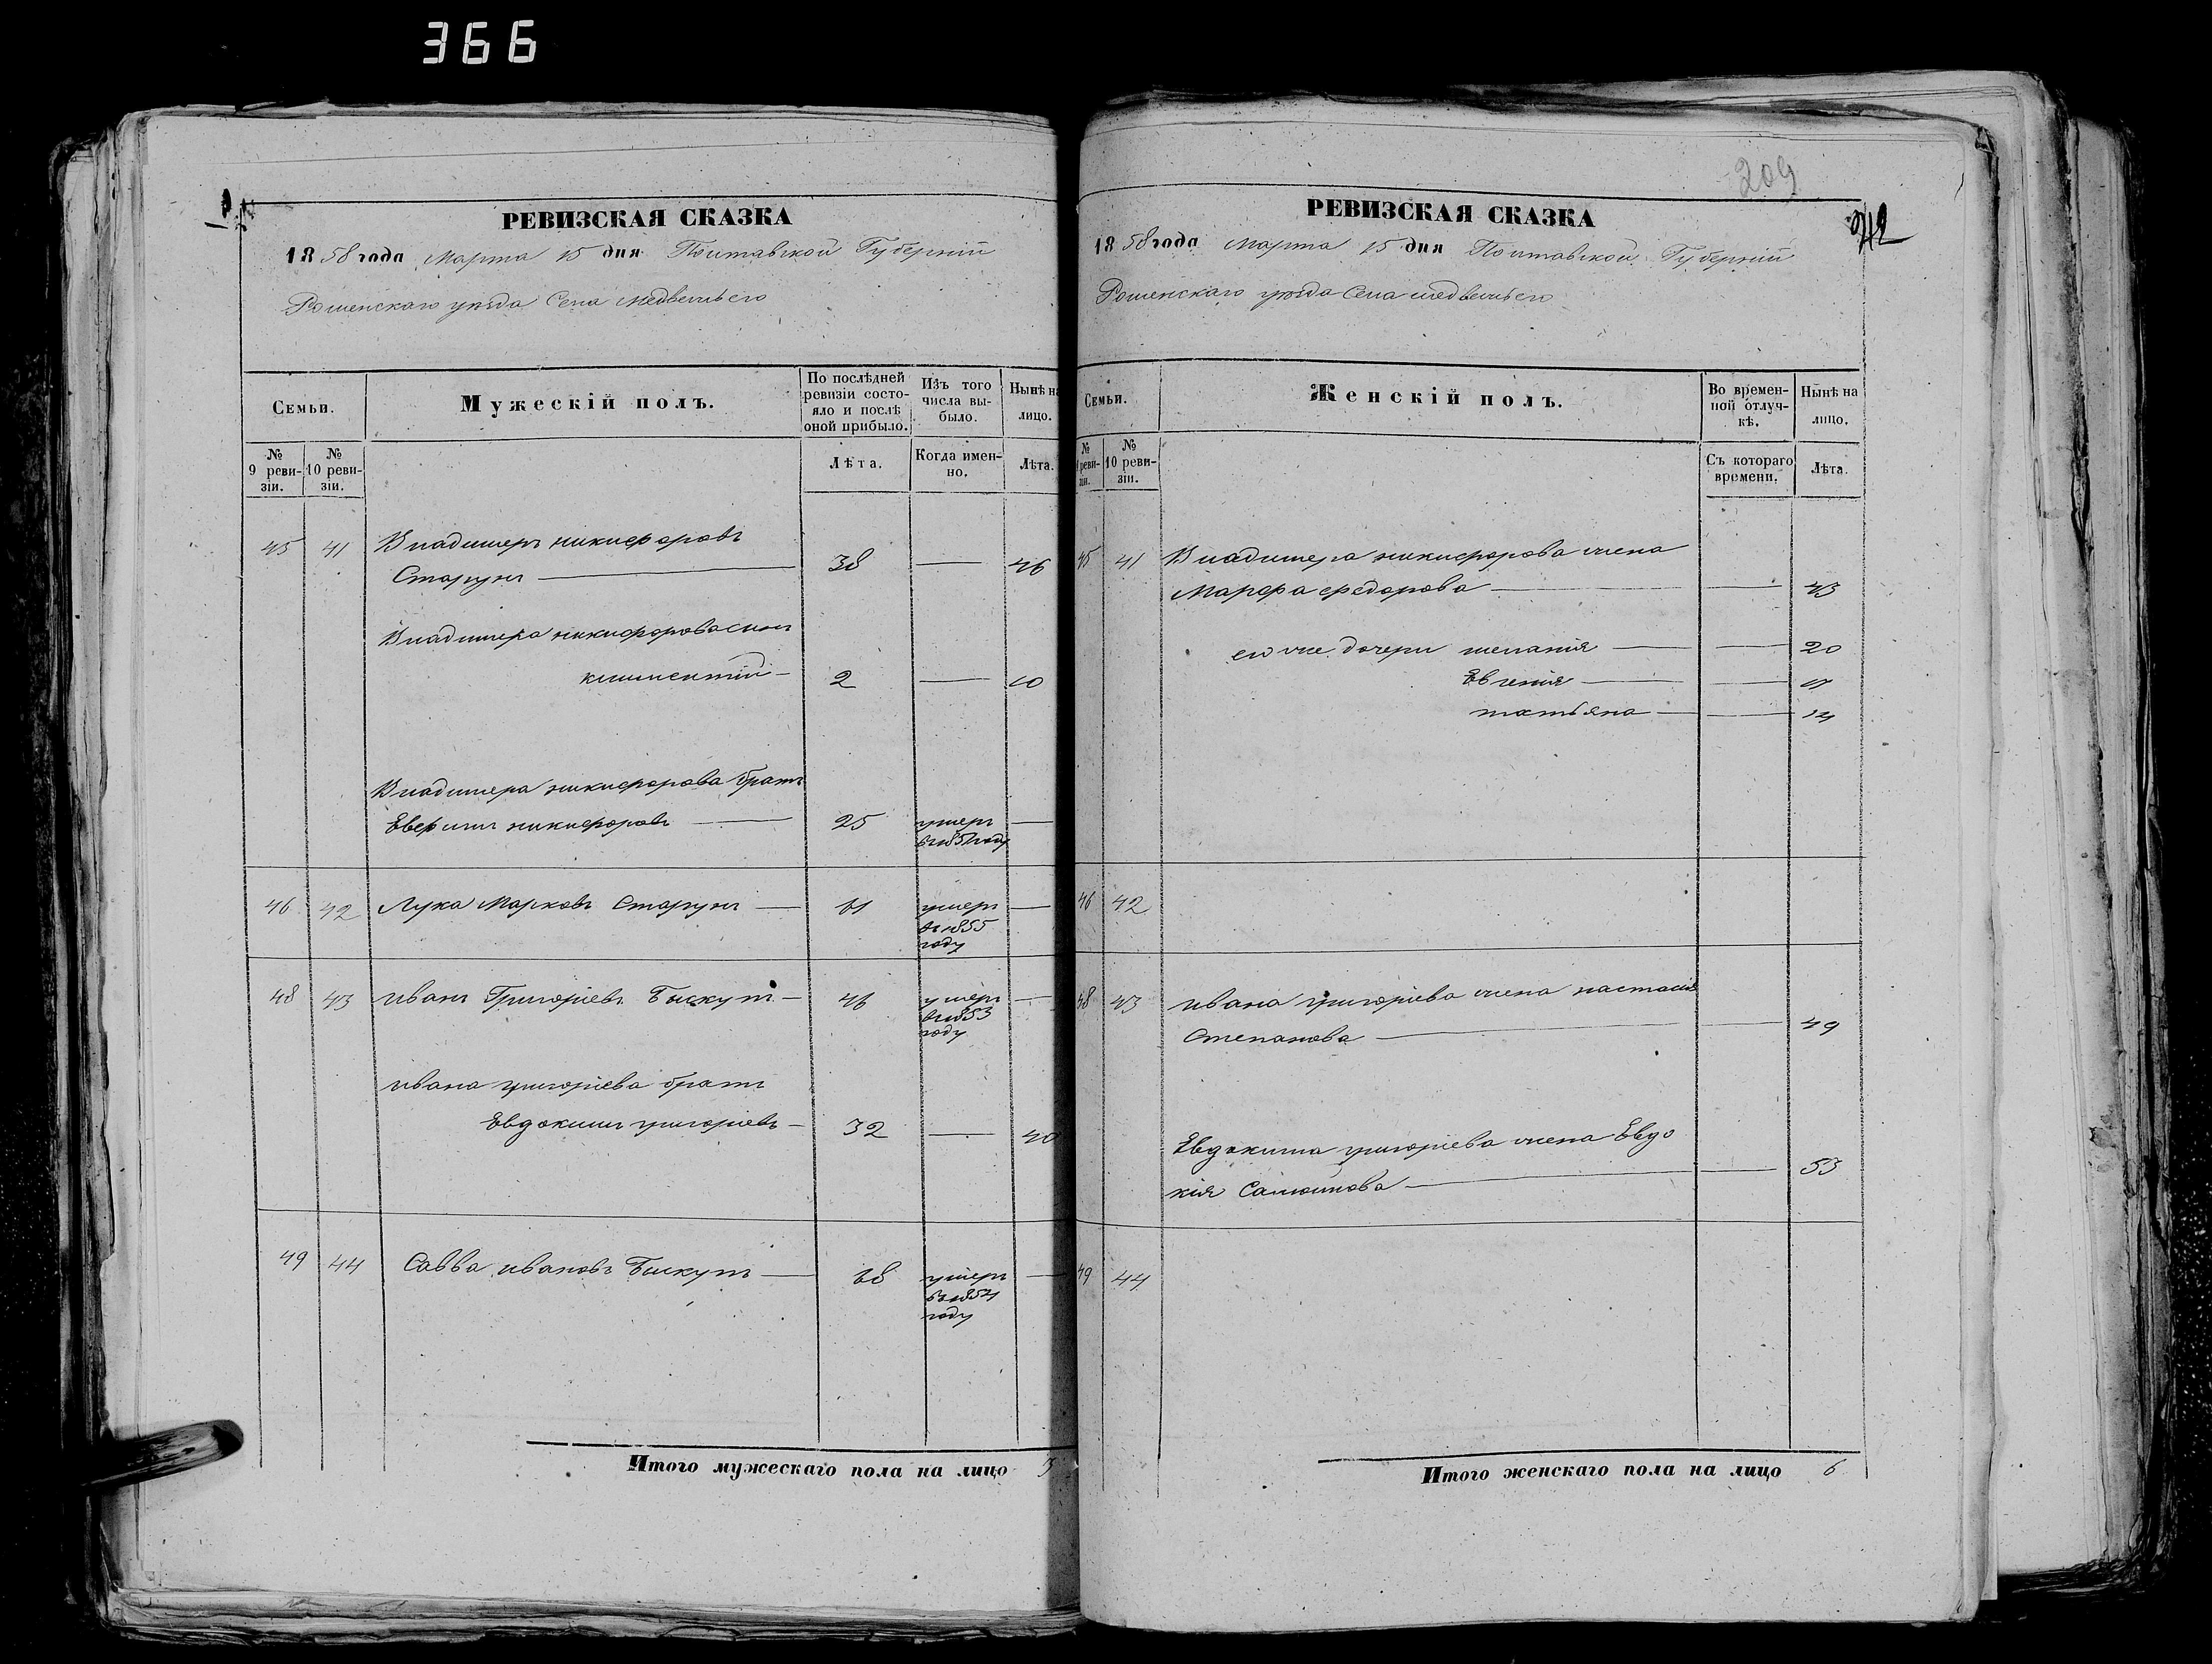 366
РЕВИЗСКАЯ СКАЗКА
1858 года Марта 15 дня Полтавской Губерніи
Роменскаго уѣзда Села Медвежьего
Семьи.
Мужескій полъ.
По послѣдней ревизіи состояло и послѣ оной прибыло.
Изъ того числа выбыло.
Нынѣ на лицо.
№ 9 ревизіи.
№ 10 ревизіи.
Лѣта.
Когда именно.
Лѣта.
45 41 Владимеръ никифоровъ
Старунъ — 38 — 46
Владимера никифорова сынъ
климентій — 2 — 10
Владимера никифорова братъ
никифоровъ — 25 умеръ —
году
46 42 Лука Марковъ Старунъ — 61 умеръ —
въ 1855
году
48 43 иванъ Григоріевъ Бискупъ — 46 умеръ —
въ 1853
году
ивана григоріева братъ
Евдокимъ григоріевъ — 32 — 40
49 44 Савва ивановъ Бискупъ — 68 умеръ —
въ 1854
году
Итого мужескаго пола на лицо 3
209
РЕВИЗСКАЯ СКАЗКА
1858 года Марта 15 дня Полтавской Губерніи
Роменскаго уѣзда Села медвежьего
Семьи.
Женскій полъ.
Во временной отлучкѣ.
Нынѣ на лицо.
№ 9 ревизіи.
№ 10 ревизіи.
Съ котораго времени.
Лѣта.
45 41 Владимера никифорова жена
Марфа федорова — — 43
его же дочери меланія — — 20
Евгенія — — 17
татьяна — — 14
46 42
48 43 ивана григоріева жена настасія
Степанова — — 49
Евдокима григоріева жена Евдо
кія — — 53
49 44
Итого женскаго пола на лицо 6